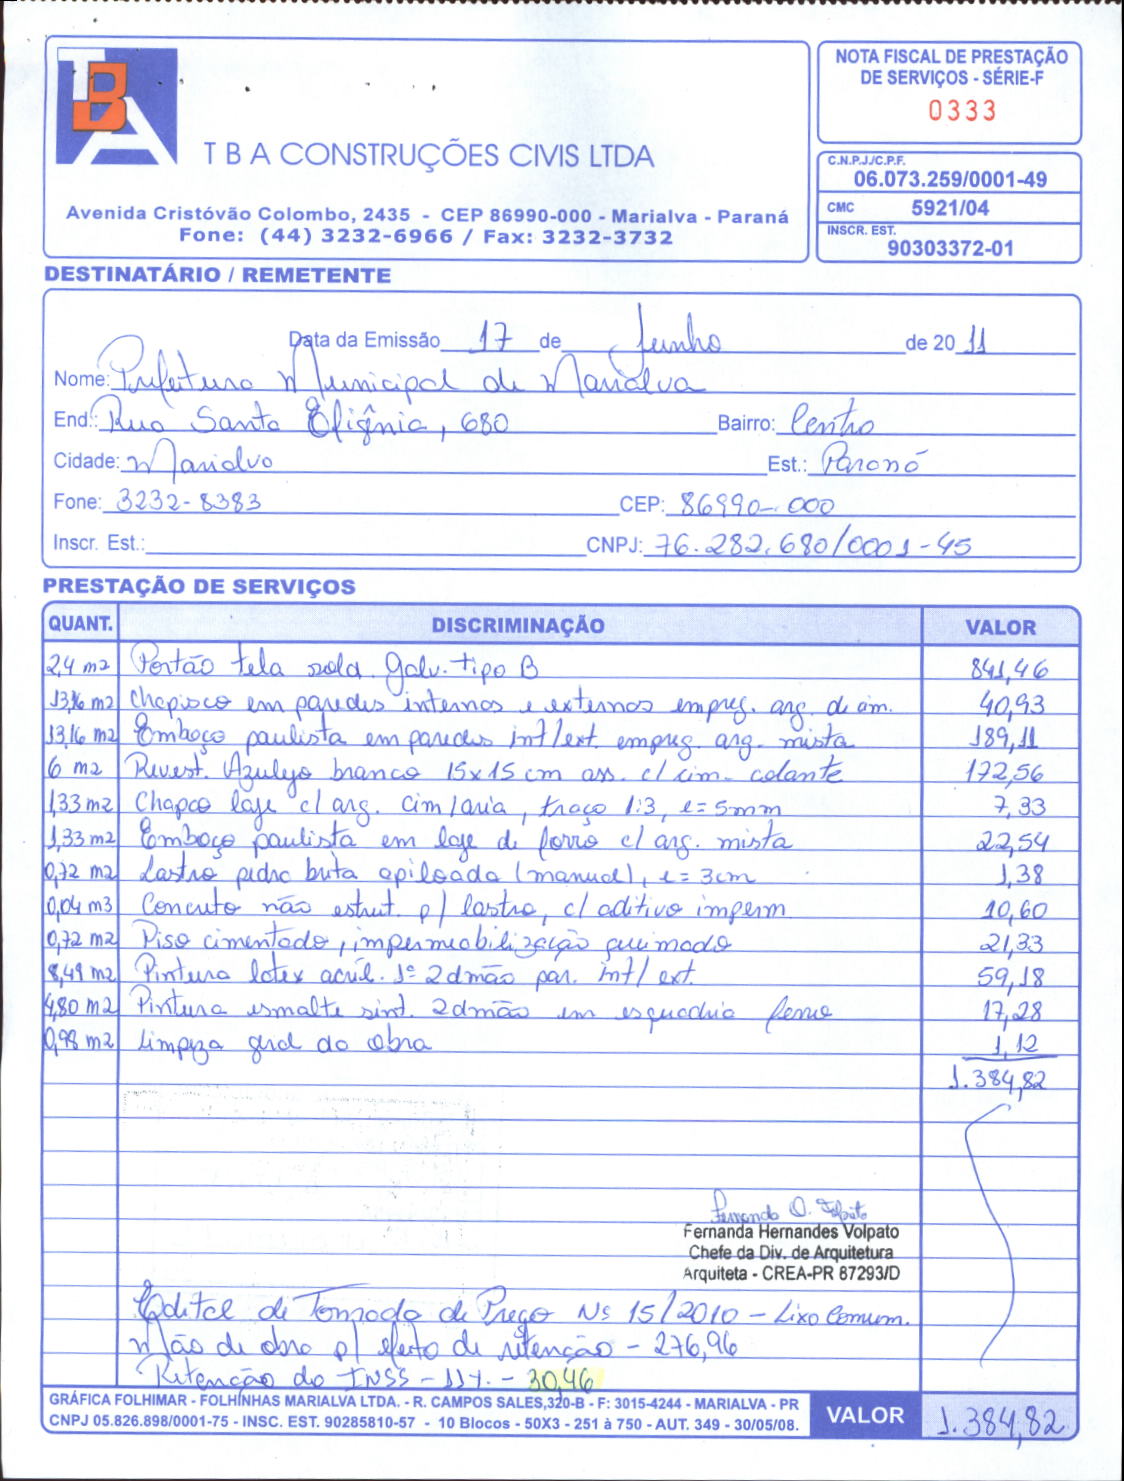 TBA
NOTA FISCAL DE PRESTAÇÃO
DE SERVIÇOS - SÉRIE-F
0333
T B A CONSTRUÇÕES CIVIS LTDA
C.N.P.J./C.P.F.
06.073.259/0001-49
CMC 5921/04
INSCR. EST.
90303372-01
Avenida Cristóvão Colombo, 2435 - CEP 86990-000 - Marialva - Paraná
Fone: (44) 3232-6966 / Fax: 3232-3732
DESTINATÁRIO / REMETENTE
Data da Emissão 17 de Junho de 2011
Nome: Prefeitura Municipal de Marialva
End.: Rua Santa Efigênia, 680 Bairro: Centro
Cidade: Marialva Est.: Paraná
Fone: 3232-8383 CEP: 86990-000
Inscr. Est.: CNPJ: 76.282.680/0001-45
PRESTAÇÃO DE SERVIÇOS
QUANT. DISCRIMINAÇÃO VALOR
2,4 m2 Portão tela sold. galv. tipo B 841,46
13,16 m2 Chapisco em paredes internas e externas empreg. arg. de cim. 40,93
13,16 m2 Emboço paulista em paredes int/ext. empreg. arg. mista 189,11
6 m2 Revest. Azulejo branco 15x15 cm ass. c/ cim. colante 172,56
1,33 m2 Chapco laje c/ arg. cim/aria, traço 1:3, e=5mm 7,33
1,33 m2 Emboço paulista em laje de forro c/ arg. mista 22,54
0,72 m2 Lastro pedra brita apiloada (manual), e=3cm 1,38
0,04 m3 Concreto não estrut. p/ lastro, c/ aditivo imperm 10,60
0,72 m2 Piso cimentado, impermeabilização queimado 21,33
8,49 m2 Pintura latex acríl. 1ª 2dmão par. int/ ext. 59,18
4,80 m2 Pintura esmalte sint. 2dmão em esquadria ferro 17,28
0,98 m2 Limpeza geral da obra 1,12
1.384,82
Fernanda Hernandes Volpato
Chefe da Div. de Arquitetura
Arquiteta - CREA-PR 87293/D
Edital de Tomada de Preço Nº 15/2010 - Lixo Comum.
Mão de obra p/ efeito de retenção - 276,96
Retenção do INSS - 11% - 30,46
GRÁFICA FOLHIMAR - FOLHINHAS MARIALVA LTDA. - R. CAMPOS SALES,320-B - F: 3015-4244 - MARIALVA - PR
CNPJ 05.826.898/0001-75 - INSC. EST. 90285810-57 - 10 Blocos - 50X3 - 251 à 750 - AUT. 349 - 30/05/08.
VALOR 1.384,82